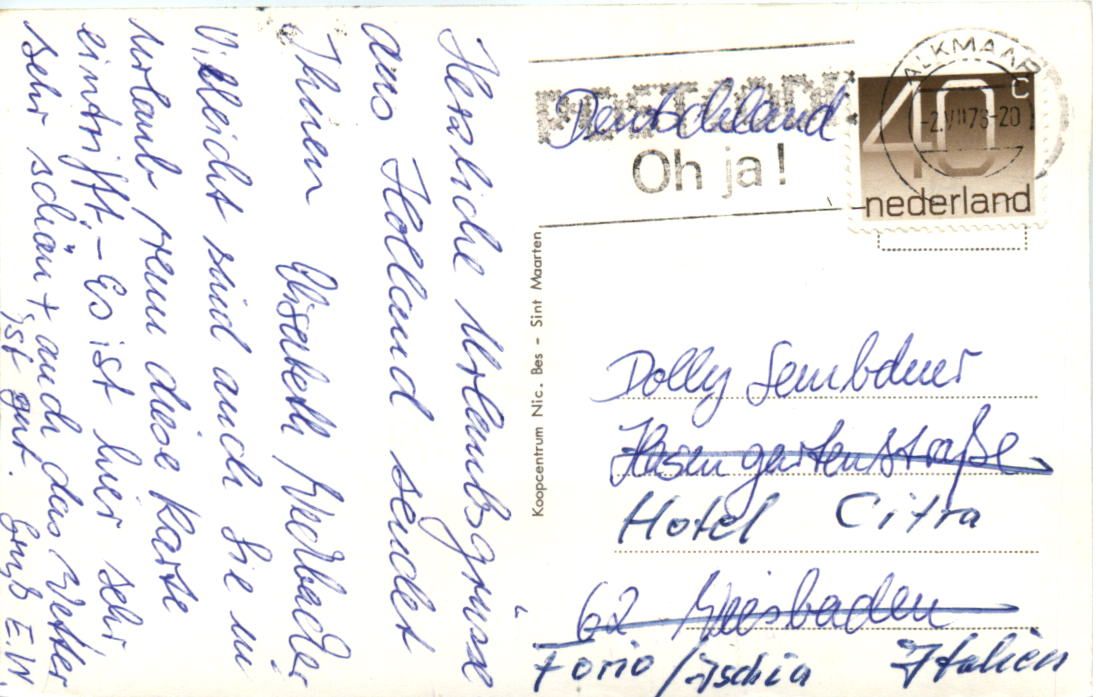 Herzliche Urlaubsgrüsse
aus Holland sendet
Ihnen Elisabeth
Vielleicht sind auch Sie in
Urlaub wenn diese Karte
eintrifft. - Es ist hier sehr
sehr schön + auch das Wetter
ist gut. Gruß E.W.
Koopcentrum Nic. Bes - Sint Maarten
POSTCODE
Oh ja!
Deutschland
ALKMAAR
-2.VIII78-20
40 C
nederland
Dolly Sembdner
Hasengartenstraße
Hotel Citra
62 Wiesbaden
Forio / Ischia Italien